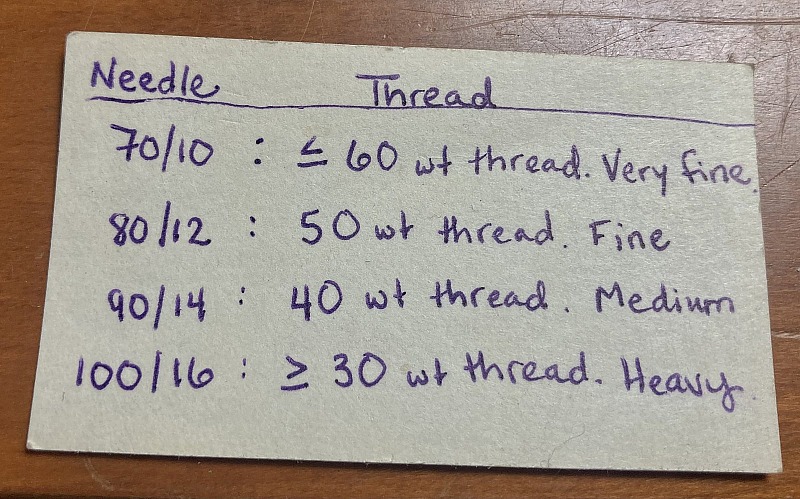 Needle Thread
70/10 : ≤ 60 wt thread. Very fine.
80/12 : 50 wt thread. Fine
90/14 : 40 wt thread. Medium
100/16 : ≥ 30 wt thread. Heavy.